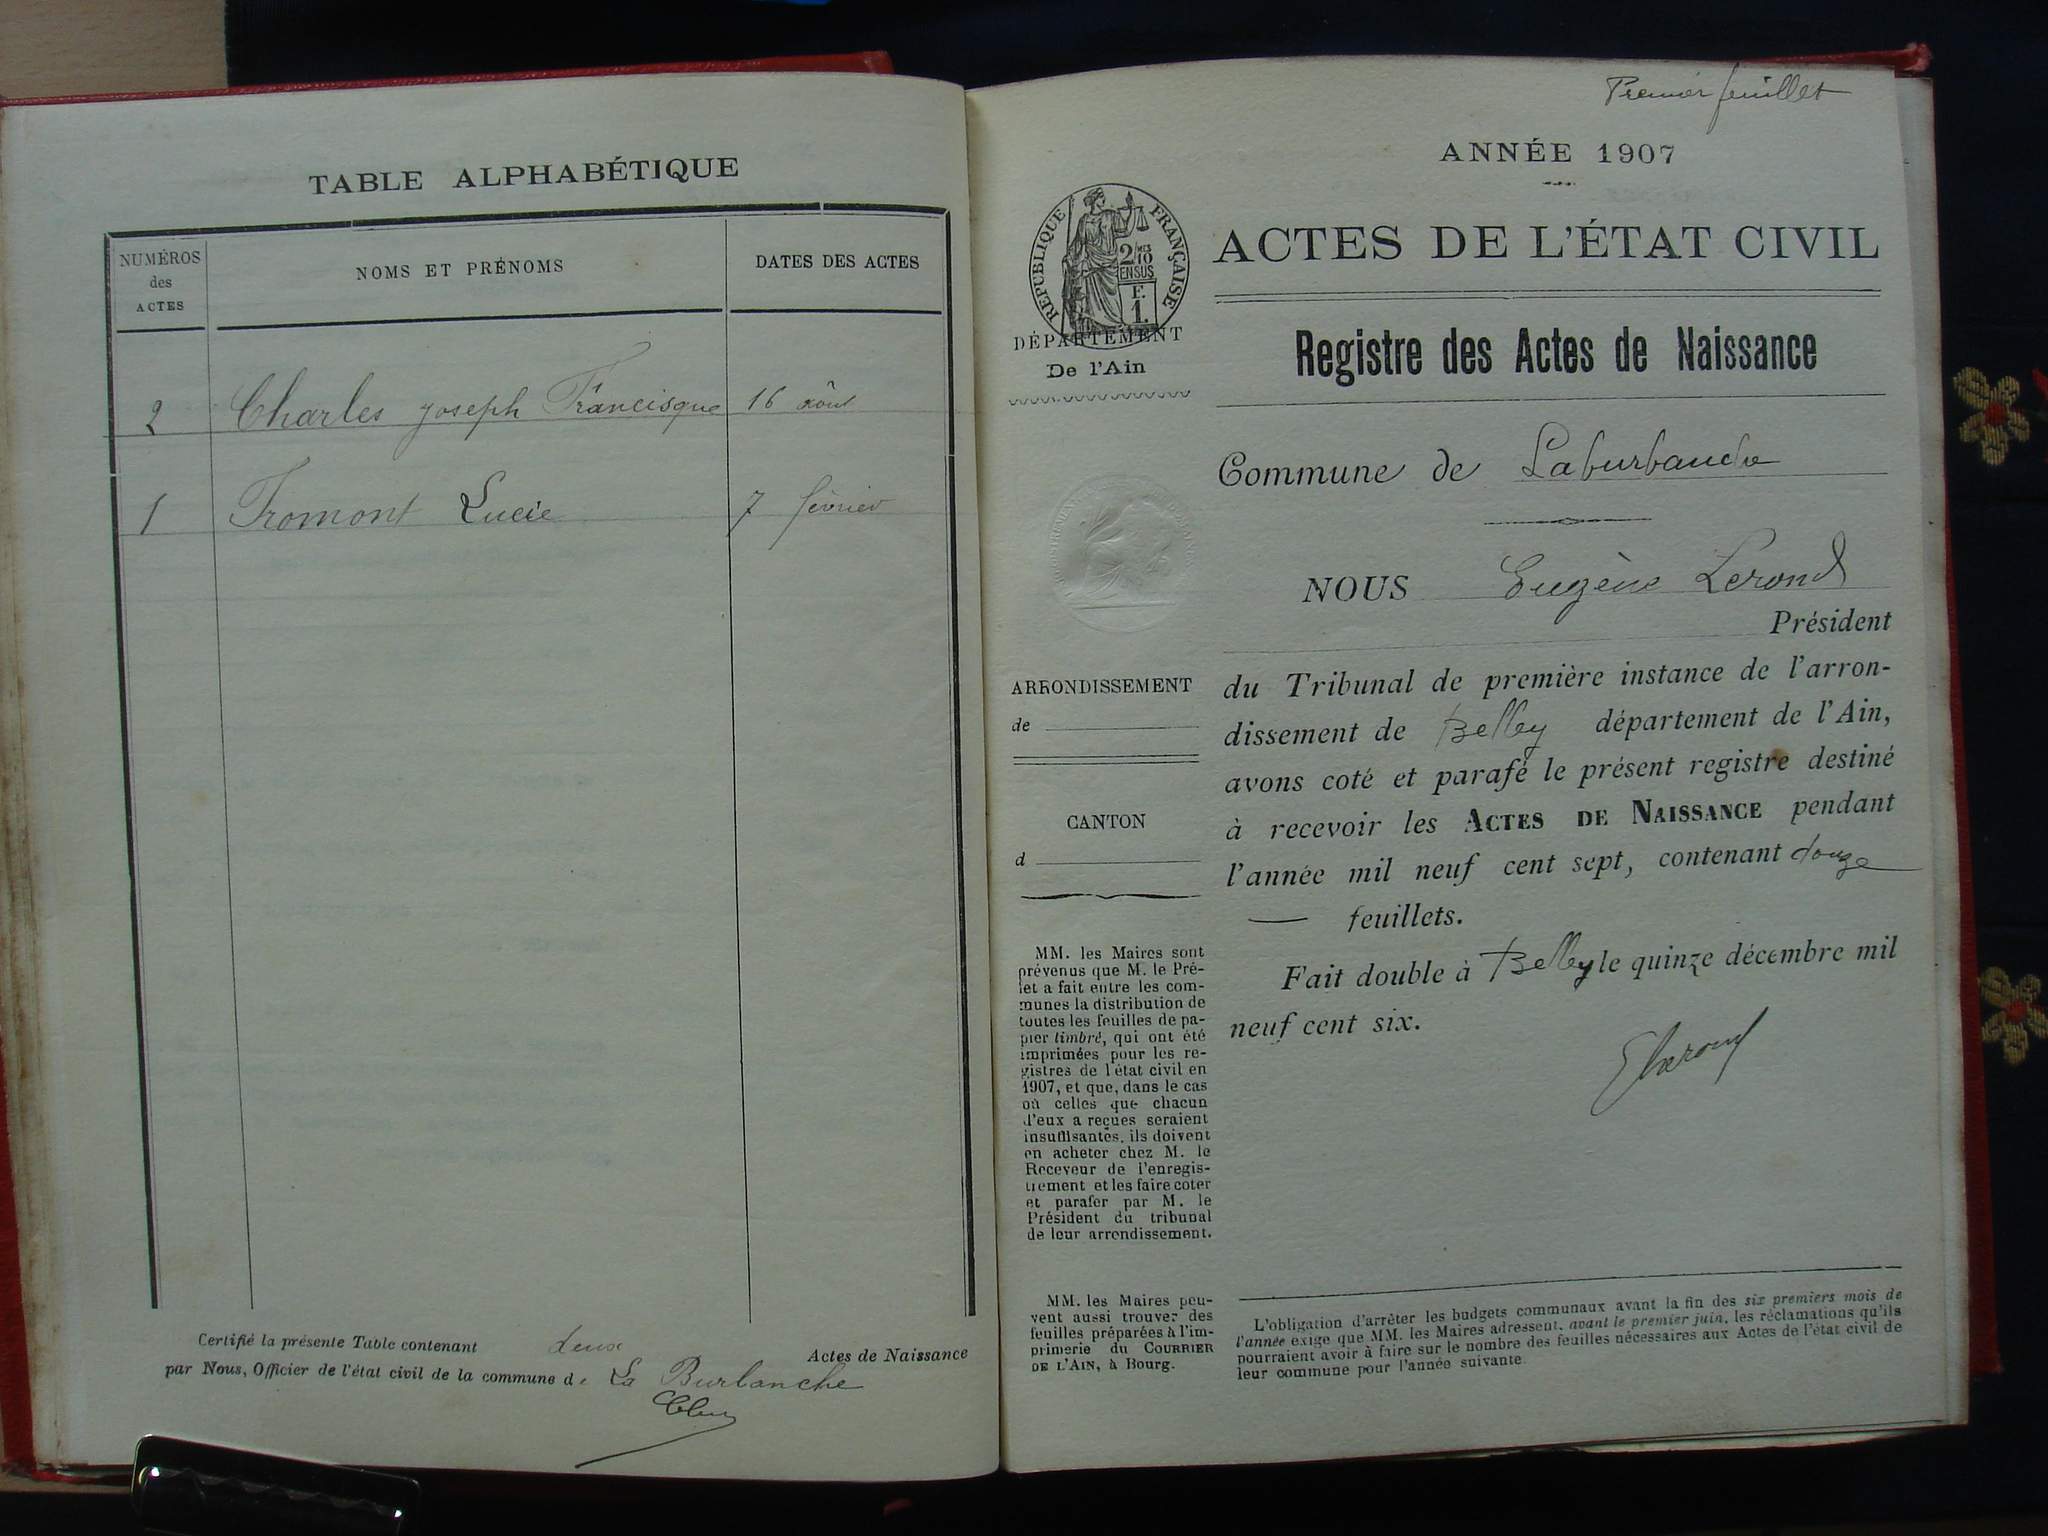 TABLE ALPHABÉTIQUE
NUMÉROS
des
ACTES
NOMS ET PRÉNOMS
DATES DES ACTES
2 Charles joseph Francisque 16 août
1 Fromont Lucie 7 février
Certifié la présente Table contenant deux Actes de Naissance
par Nous, Officier de l'état civil de la commune de La Burbanche
Premier feuillet
ANNÉE 1907
RÉPUBLIQUE FRANÇAISE
2/10
EN SUS
F.
1.
ACTES DE L'ÉTAT CIVIL
DÉPARTEMENT
De l'Ain
Registre des Actes de Naissance
Commune de Laburbanche
NOUS Eugène Lerond
Président
du Tribunal de première instance de l'arron-
dissement de Belley département de l'Ain,
avons coté et parafé le présent registre destiné
à recevoir les ACTES DE NAISSANCE pendant
l'année mil neuf cent sept, contenant douze
— feuillets.
Fait double à Belley le quinze décembre mil
neuf cent six.
ELerond
ARRONDISSEMENT
de
CANTON
d
MM. les Maires sont
prévenus que M. le Pré-
fet a fait entre les com-
munes la distribution de
toutes les feuilles de pa-
pier timbré, qui ont été
imprimées pour les re-
gistres de l'état civil en
1907, et que, dans le cas
où celles que chacun
d'eux a reçues seraient
insuffisantes, ils doivent
en acheter chez M. le
Receveur de l'enregis-
trement et les faire coter
et parafer par M. le
Président du tribunal
de leur arrondissement.
MM. les Maires peu-
vent aussi trouver des
feuilles préparées à l'im-
primerie du COURRIER
DE L'AIN, à Bourg.
L'obligation d'arrêter les budgets communaux avant la fin des six premiers mois de
l'année exige que MM. les Maires adressent, avant le premier juin, les réclamations qu'ils
pourraient avoir à faire sur le nombre des feuilles nécessaires aux Actes de l'état civil de
leur commune pour l'année suivante.